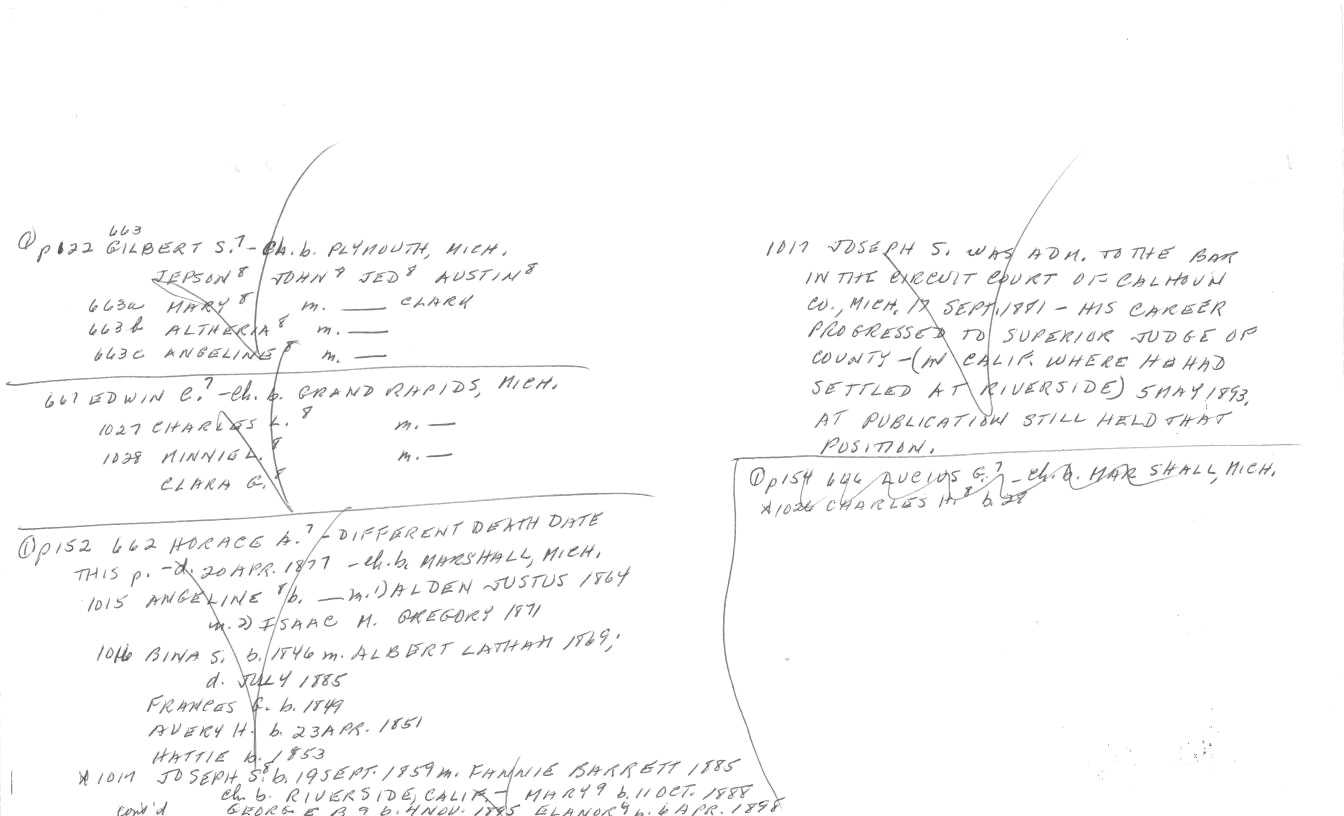 663
① p122 GILBERT S.⁷ - Ch. b. PLYMOUTH, MICH.
JEPSON⁸ JOHN⁸ JED⁸ AUSTIN⁸
663a MARY⁸ m. ___ CLARK
663b ALTHERIA⁸ m. ___
663c ANGELINE⁸ m. ___
667 EDWIN C.⁷ - Ch. b. GRAND RAPIDS, MICH.
1027 CHARLES L.⁸ m. —
1028 MINNIE L.⁸ m. —
CLARA G.⁸
① p152 662 HORACE A.⁷ - DIFFERENT DEATH DATE
THIS p. - d. 20 APR. 1877 - ch. b. MARSHALL, MICH.
1015 ANGELINE⁸ b. — m. 1) ALDEN JUSTUS 1864
m. 2) ISAAC M. GREGORY 1871
1016 BINA S. b. 1846 m. ALBERT LATHAM 1869;
d. JULY 1885
FRANCES E. b. 1849
AVERY H. b. 23 APR. 1851
HATTIE b. 1853
* 1017 JOSEPH S.⁸ b. 19 SEPT. 1859 m. FANNIE BARRETT 1885
ch. b. RIVERSIDE, CALIF. - MARY⁹ b. 11 OCT. 1888
cont'd GEORGE B.⁹ b. 4 NOV. 1885 ELANOR⁹ b. 6 APR. 1898
1017 JOSEPH S. WAS ADM. TO THE BAR
IN THE CIRCUIT COURT OF CALHOUN
CO., MICH. 17 SEPT. 1881 - HIS CAREER
PROGRESSED TO SUPERIOR JUDGE OF
COUNTY - (IN CALIF. WHERE HE HAD
SETTLED AT RIVERSIDE) 5 MAY 1893.
AT PUBLICATION STILL HELD THAT
POSITION.
① p154 666 LUCIUS G.⁷ - ch. b. MARSHALL, MICH.
* 1026 CHARLES H.⁸ b. 28